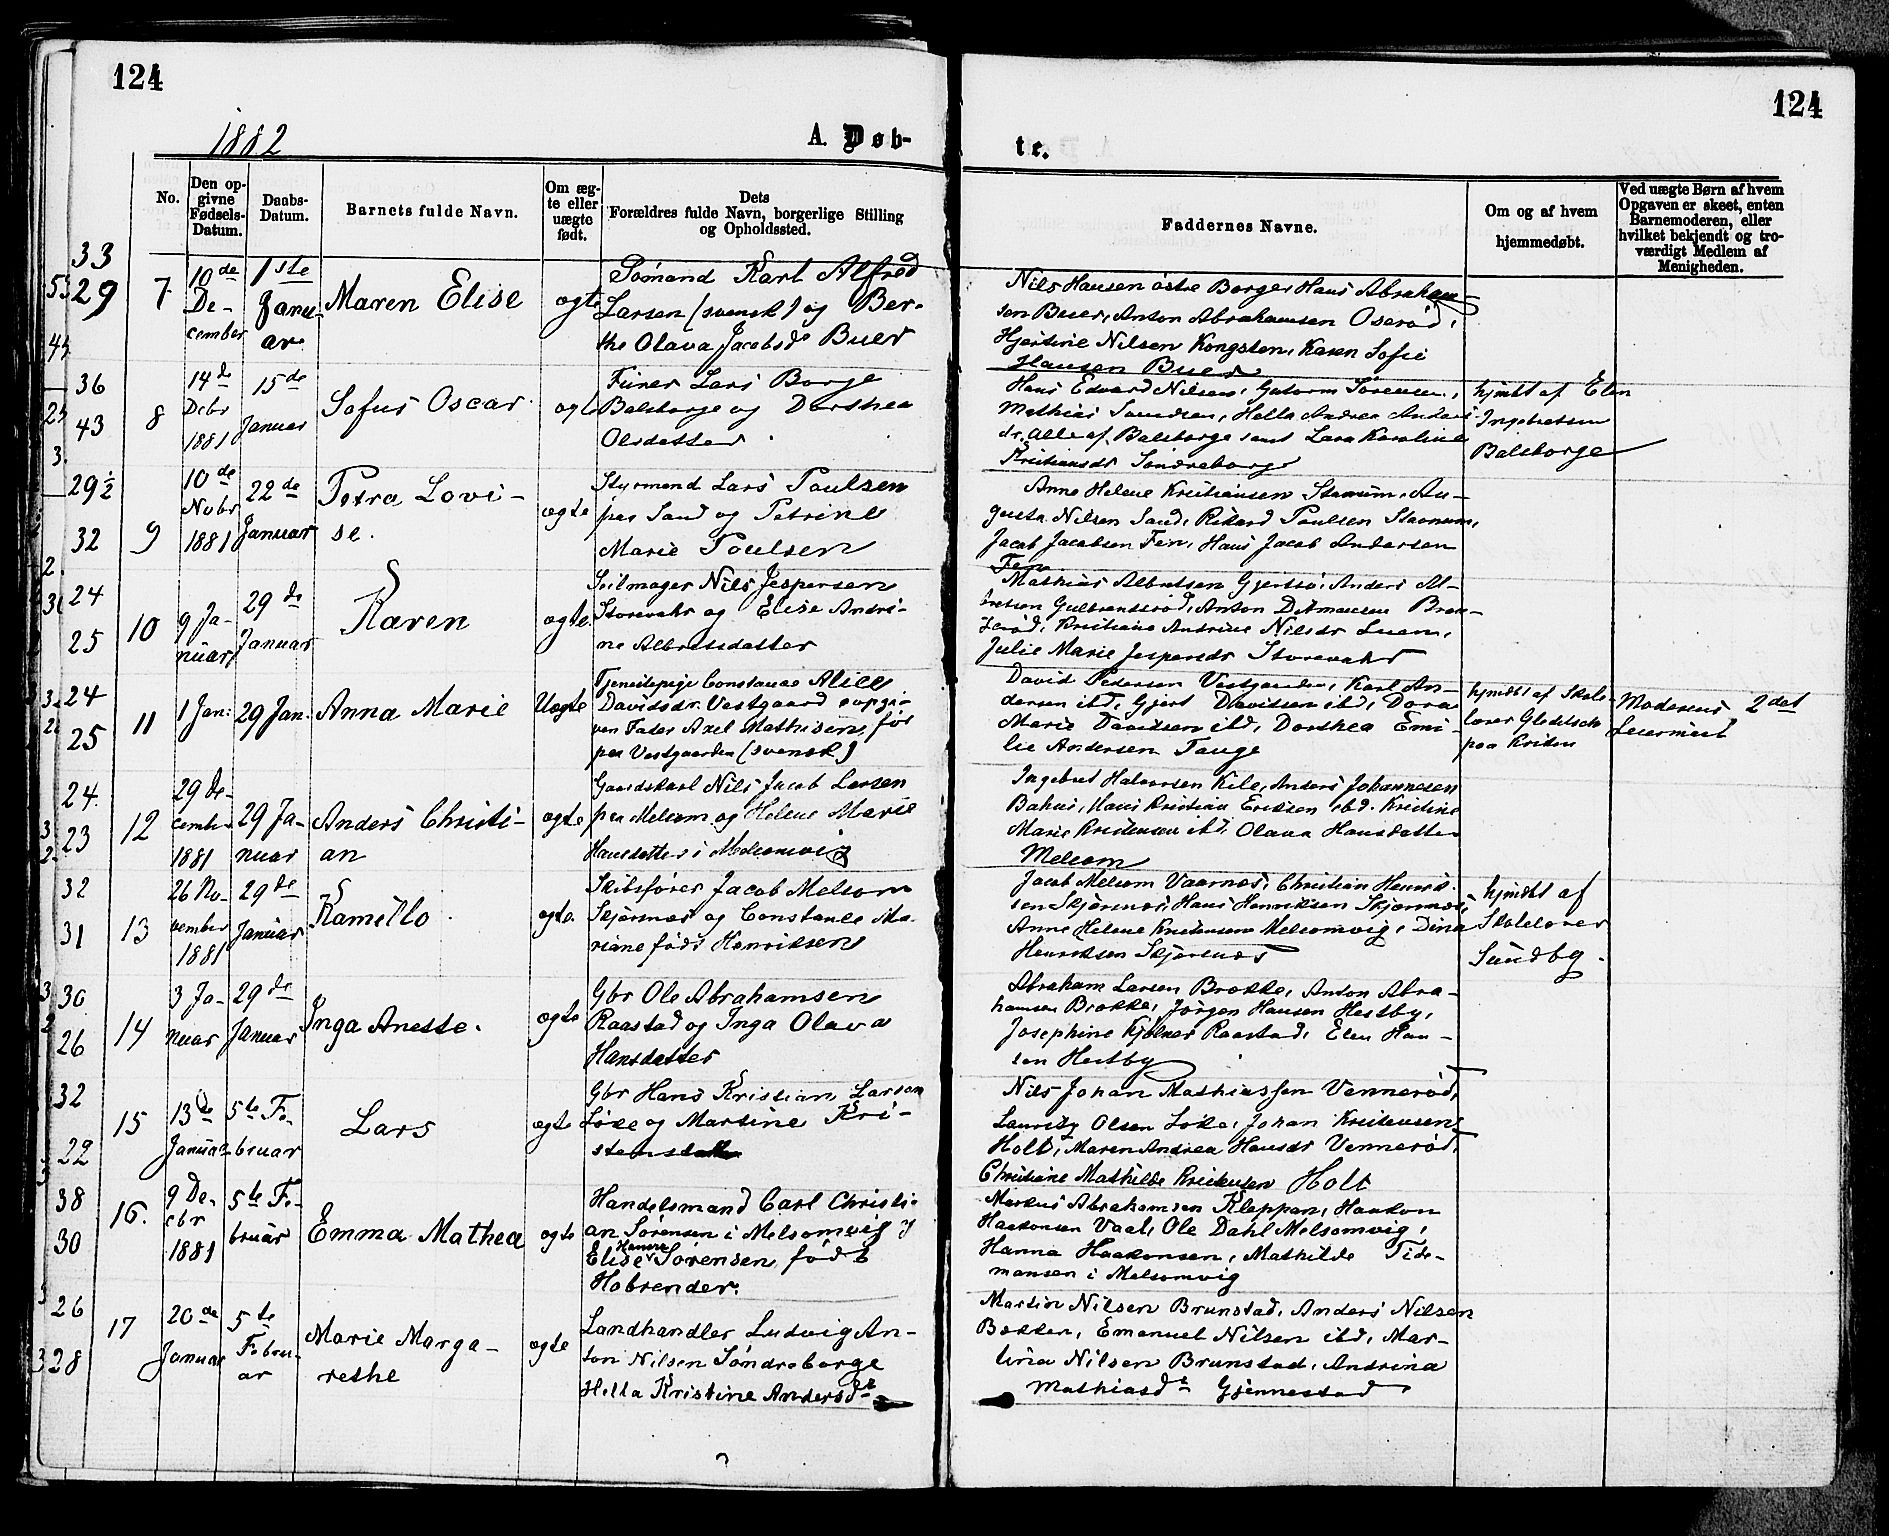 124
124
1882
A. Døb-
te.
No.
Den op-
givne
Fødsels-
Datum.
Daabs-
Datum.
Barnets fulde Navn.
Om æg-
te eller
uægte
født.
Dets
Forældres fulde Navn, borgerlige Stilling
og Opholdssted.
Faddernes Navne.
Om og af hvem
hjemmedøbt.
Ved uægte Børn af hvem
Opgaven er skeet, enten
Barnemoderen, eller
hvilket bekjendt og tro-
værdigt Medlem af
Menigheden.
33
29
7
10de
De-
cember
1ste
Janu-
ar
Maren Elise
ægte
Sømand Karl Alfred
Larsen (svensk) og Ber-
the Olava Jacobsd Buer
Nils Hansen østre Borge, Hans Abraham-
sen Buer, Anton Abrahamsen Oserød,
Hjertine Nilsen Kongsten, Karen Sofie
Hansen Buer
36
43
8
14de
Debr
1881
15de
Januar
Sofus Oscar
ægt
Lars Borge
Balsborge og Dorthea
Olsdatter
Hans Edvard Nilsen, Gutorm Sørensen,
Mathias, Hella Andrea Anders-
dr. alle af Balsborge samt Lara Karoline
Kristiansdr Søndreborge
hjmdbt af Elen
Ingebretsen
Balsborge
29½
32
9
10de
Nvbr
1881
22de
Januar
Petra Lovi-
se.
ægte
Styrmand Lars Poulsen
paa Sand og Petrine
Marie Poulsen
Anne Helene Kristiansen Stavnum, Au-
gusta Nilsen Sand, Rikard Poulsen Stavnum,
Jacob Jacobsen Fen, Hans Jacob Andersen
Fen
24
25
10
9 Ja-
nuar
29de
Januar
Karen
ægte
Seilmager Nils Jespersen
Storevahr og Elise Andri-
ne Albretsdatter
Mathias Albretsen Gjertsø, Anders Al-
bretsen Gulbrandsrød, Anton Ditmansen Bran-
Kristiane Andrine Nilsdr Luem,
Julie Marie Jespersdr Storevahr
24
25
11
1 Jan:
29 Jan.
Anna Marie
Uægte
Tjenestepige Constance Alice
Davidsdr. Vestgaard opgi-
ven Fader Axel Mathisen, før
paa Vestgaarden (svensk)
David Pedersen Vestgaarden, Karl An-
dersen ibd, Gjert Davidsen ibd, Dora
Marie Davidsen ibd, Dorthea Emi-
lie Andersen Tange
hjmdbt af Skole
lærer Gledetsch
paa
Moderens 2det
Leiermaal
24
23
12
29 De-
cember
1881
29 Ja-
nuar
Anders Christi-
an
ægte
Gaardskarl Nils Jacob Larsen
paa Melsom og Helene Marie
Hansdatter i Melsomvig
Ingebret Halvorsen Kile, Anders Johannesen
Bakus, Hans Kristian Eriksen ibd. Kristine
Marie Kristensen ibd, Olava Hansdatter
Melsom
32
31
13
26 No-
vember
1881
29de
Januar
Kamillo
ægte
Skibsfører Jacob Melsom
Skjærsnæs og Constance Ma-
riane født Henriksen
Jacob Melsom Vaarnæs, Christian Henrik-
sen Skjærsnæs, Hans Henriksen Skjærsnæs,
Anne Helene Kristensen Melsomvig, Dina
Henriksen Skjærsnæs
hjmdbt af
Skolelærer
Sundby
30
26
14
3 Ja-
nuar
29de
Januar
Inga Anette.
ægte
Gbr Ole Abrahamsen
Raastad og Inga Olava
Hansdatter
Abraham Larsen Brække, Anton Abra-
hamsen Brække, Jørgen Hansen Hestby,
Josephine Kjølner Raastad, Elen Han-
sen Hestby
32
22
15
13de
Januar
5te Fe-
bruar
Lars
ægte
Gbr Hans Kristian Larsen
Løke og Martine Kri-
stensdatter
Nils Johan Mathiassen Vennerød,
Lauritz Olsen Løke, Johan Kristensen
Holt, Maren Andrea Hansdr Vennerød,
Christiane Mathilde Kristensen Holt
38
30
16.
9 De-
cbr
1881
5te Fe-
bruar
Emma Mathea
ægte
Handelsmand Carl Christi-
an Sørensen i Melsomvig og
Elise Hanna Sørensen, født
Hobrender.
Markus Abrahamsen Kleppan, Haakon
Haakonsen Vaal, Ole Dahl Melsomvig,
Hanna Haakonsen, Mathilde Tide-
mansen i Melsomvig
26
28
17
20de
Januar
5te
Febru-
ar
Marie Marga-
rethe
ægte
Landhandler Ludvig An-
ton Nilsen Søndreborge
Hella Kristine Andersdt
Martin Nilsen Brunstad, Anders Nilsen
Bakken, Emanuel Nilsen ibd, Mar-
tina Nilsen Brunstad, Andrina
Mathiasdt Gjennestad